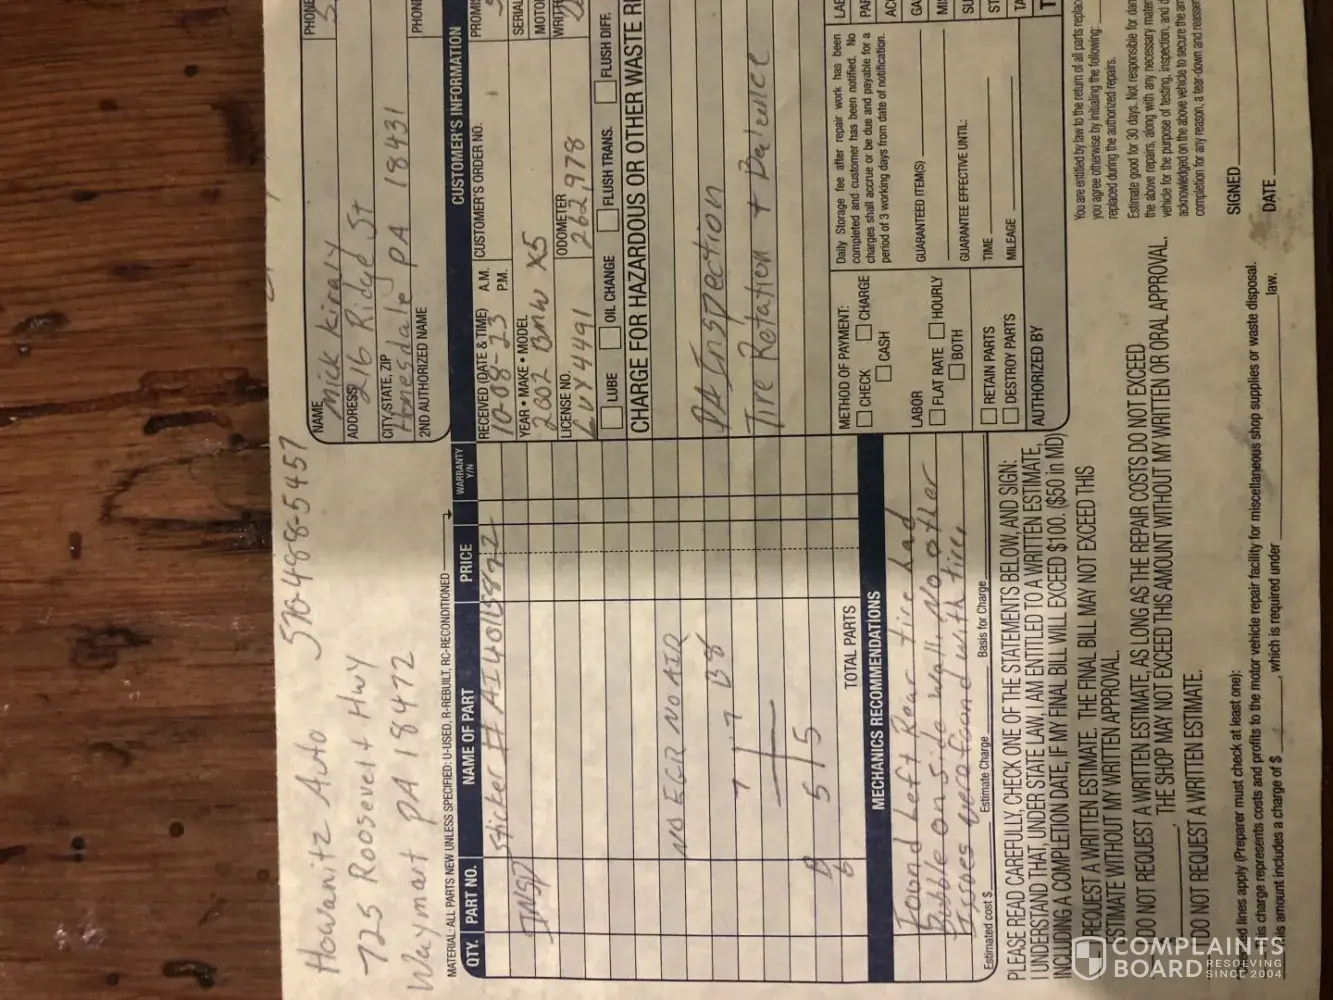 Howanitz Auto 576-488-5457
725 Roosevelt Hwy
Waymart PA 18472
MATERIAL: ALL PARTS NEW UNLESS SPECIFIED: U-USED, R-REBUILT, RC-RECONDITIONED
QTY. PART NO. NAME OF PART PRICE WARRANTY Y/N
INSP Sticker # AI40115872
NO EGR NO AIR
7 7 B8
5 5
TOTAL PARTS
MECHANICS RECOMMENDATIONS
Found Left Rear tire had
Bubble on side wall. No other
Issues were found with tire.
Estimated cost $ Estimate Charge Basis for Charge
PHONE
NAME Mick Kiraly
ADDRESS 216 Ridge St
CITY, STATE, ZIP Honesdale PA 18431
2ND AUTHORIZED NAME PHONE
CUSTOMER'S INFORMATION
RECEIVED (DATE & TIME) A.M. P.M. CUSTOMER'S ORDER NO.
10-08-23
YEAR • MAKE • MODEL
2002 BMW X5
LICENSE NO. ODOMETER
LVY4491 262,978
LUBE OIL CHANGE FLUSH TRANS. FLUSH DIFF.
CHARGE FOR HAZARDOUS OR OTHER WASTE
PA Inspection
Tire Rotation + Balance
METHOD OF PAYMENT:
CHECK CHARGE
CASH
LABOR
FLAT RATE HOURLY
BOTH
RETAIN PARTS
DESTROY PARTS
AUTHORIZED BY
Daily Storage fee after repair work has been
completed and customer has been notified. No
charges shall accrue or be due and payable for a
period of 3 working days from date of notification.
GUARANTEED ITEM(S)
GUARANTEE EFFECTIVE UNTIL:
TIME
MILEAGE
PLEASE READ CAREFULLY, CHECK ONE OF THE STATEMENTS BELOW, AND SIGN:
I UNDERSTAND THAT, UNDER STATE LAW, I AM ENTITLED TO A WRITTEN ESTIMATE,
INCLUDING A COMPLETION DATE, IF MY FINAL BILL WILL EXCEED $100. ($50 in MD)
REQUEST A WRITTEN ESTIMATE. THE FINAL BILL MAY NOT EXCEED THIS
ESTIMATE WITHOUT MY WRITTEN APPROVAL.
DO NOT REQUEST A WRITTEN ESTIMATE, AS LONG AS THE REPAIR COSTS DO NOT EXCEED
THE SHOP MAY NOT EXCEED THIS AMOUNT WITHOUT MY WRITTEN OR ORAL APPROVAL.
DO NOT REQUEST A WRITTEN ESTIMATE.
You are entitled by law to the return of all parts
you agree otherwise by initialing the following:
replaced during the authorized repairs.
Estimate good for 30 days. Not responsible for
the above repairs, along with any necessary
vehicle for the purpose of testing, inspection, and
acknowledged on the above vehicle to secure the
completion for any reason, a tear-down and
SIGNED
DATE
lines apply (Preparer must check at least one):
is charge represents costs and profits to the motor vehicle repair facility for miscellaneous shop supplies or waste disposal.
is amount includes a charge of $ , which is required under law.
COMPLAINTS
BOARD RESOLVING SINCE 2004